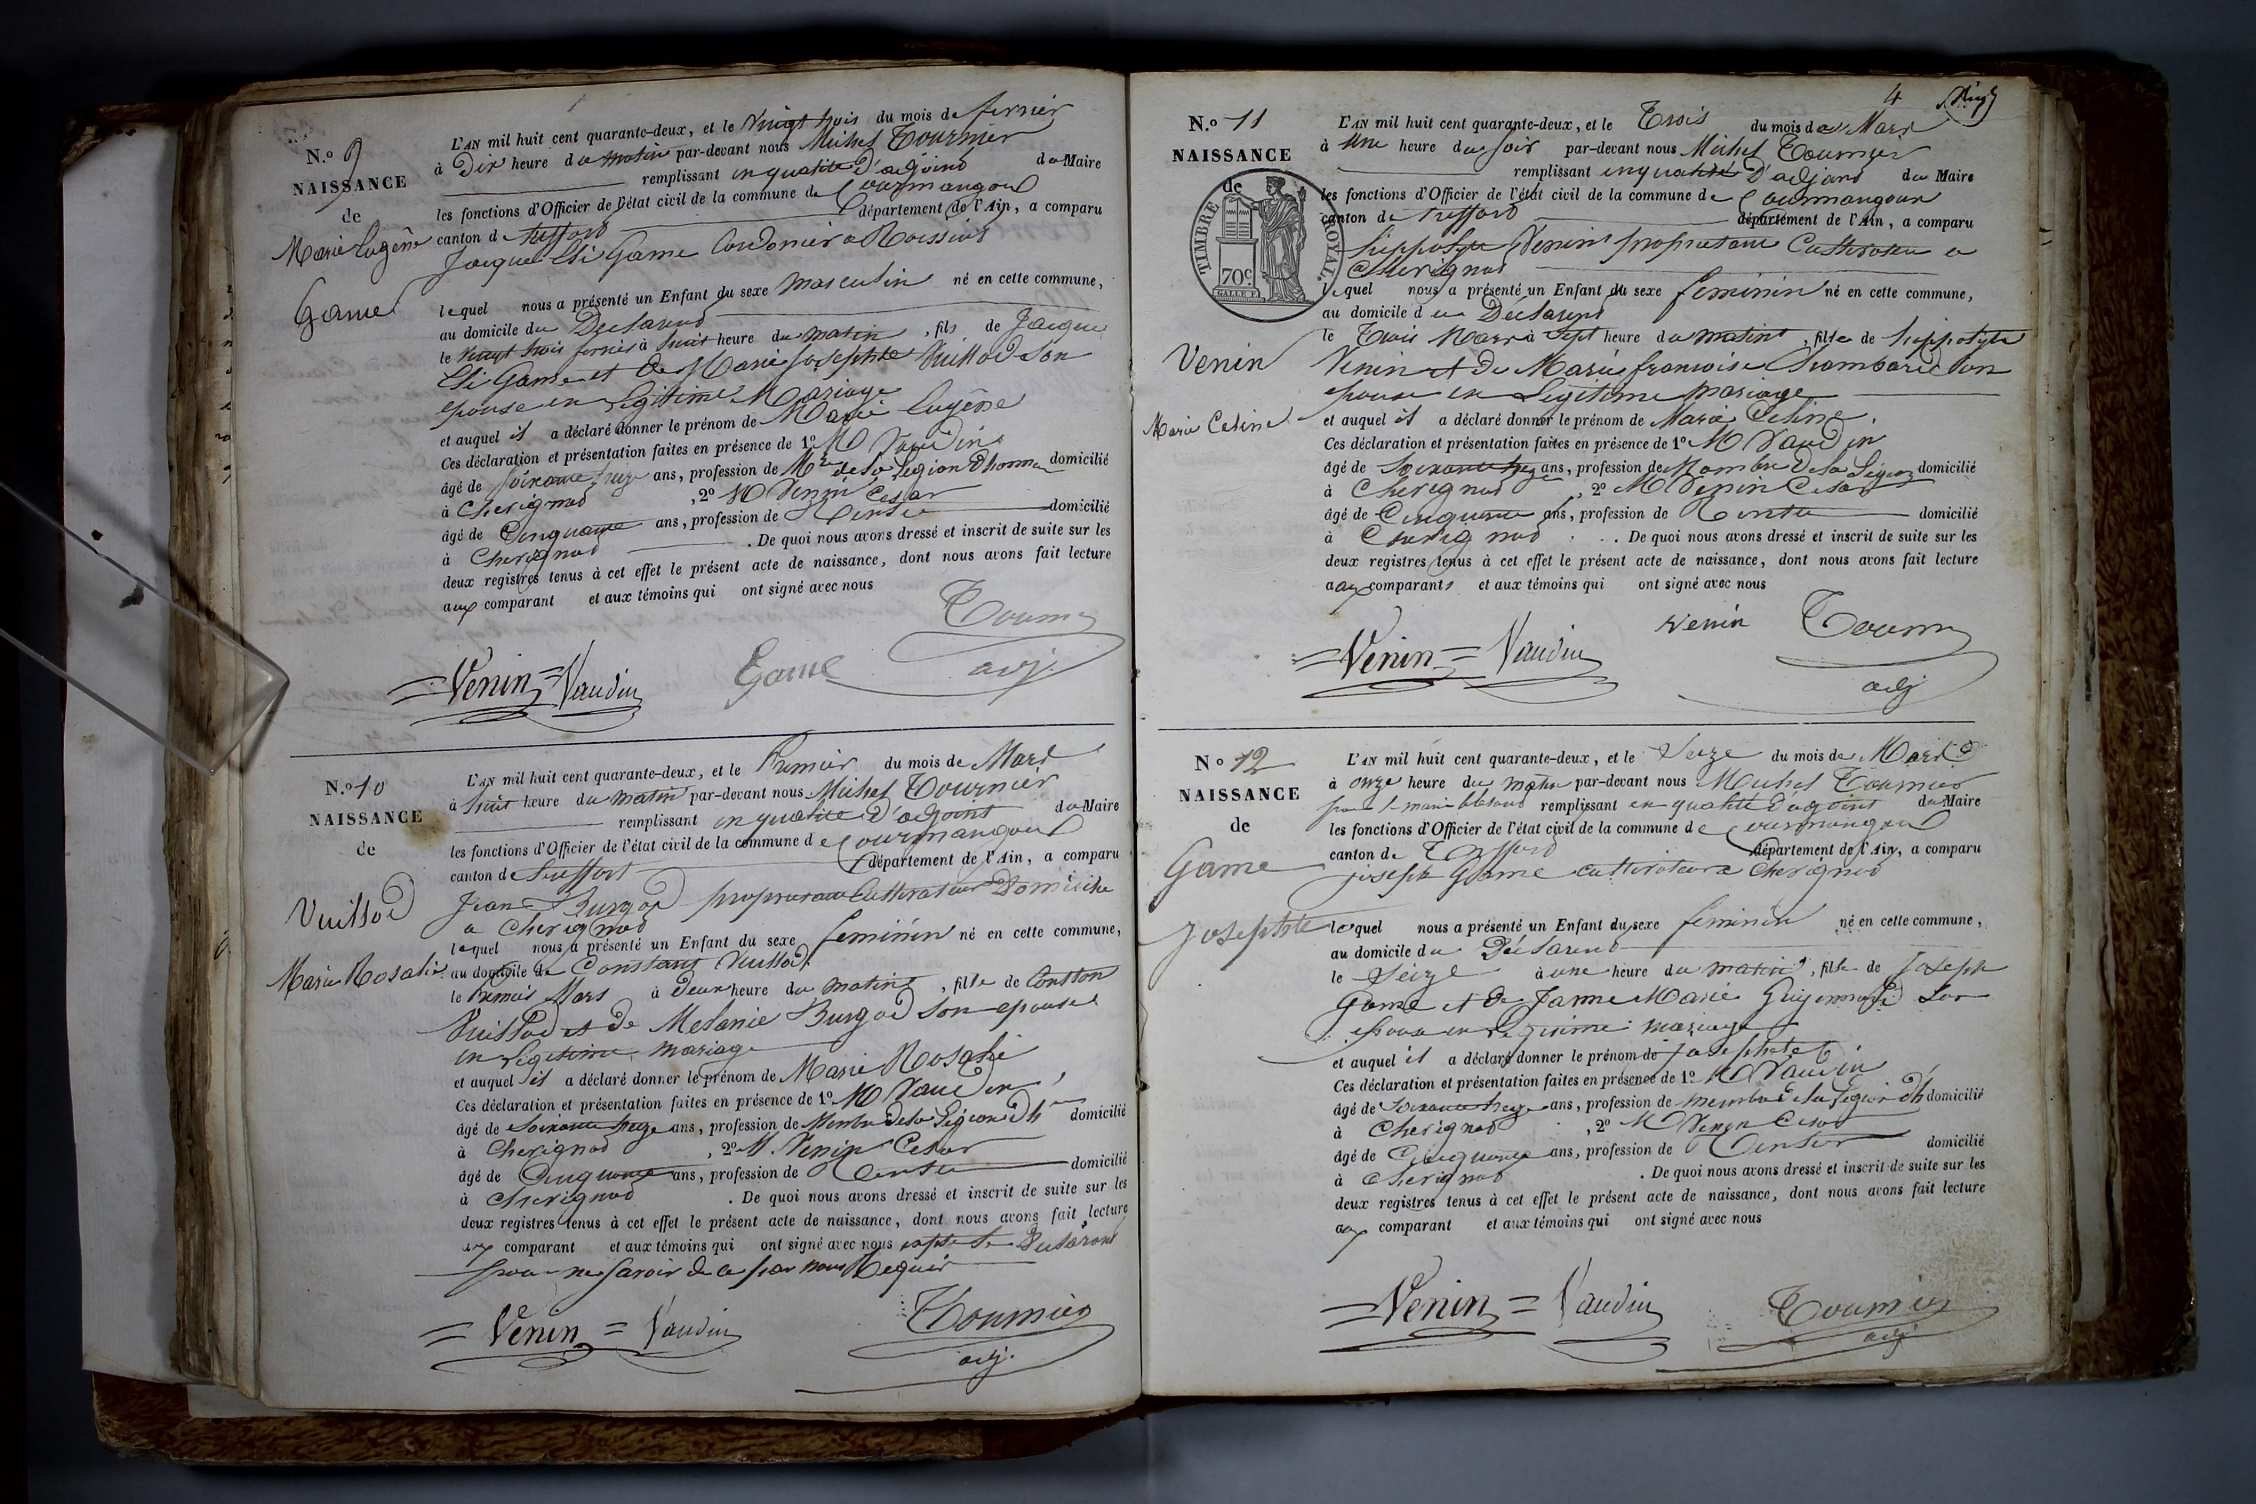 N.o 9
NAISSANCE
de
Marie Eugêne
Game
L'AN mil huit cent quarante-deux, et le Vingt trois du mois de fevrier
à Dix heure du matin par-devant nous Michel Tournier
remplissant en qualité d'adjoind du Maire
les fonctions d'Officier de l'état civil de la commune de Courmangoux
canton de Treffort département de l'Ain, a comparu
Jacque Game Cordonier a Roissiat
lequel nous a présenté un Enfant du sexe masculin né en cette commune,
au domicile du Declarend
le vingt trois fevrier à huit heure du matin, fils de Jacque
Game et de Marie Josephte Vuillod son
epouse en Legitime Mariage
et auquel il a déclaré donner le prénom de Marie Eugêne
Ces déclaration et présentation faites en présence de 1o M Vaudin
âgé de soixante treize ans, profession de Mbre de la Legion d'honneur domicilié
à Cherignad, 2o M Venin Cesar
âgé de Cinquante ans, profession de Rentier domicilié
à Cherignad. De quoi nous avons dressé et inscrit de suite sur les
deux registres tenus à cet effet le présent acte de naissance, dont nous avons fait lecture
aux comparant et aux témoins qui ont signé avec nous
Venin Vaudin Game Tournier
adj.
N.o 10
NAISSANCE
de
Vuillod
Marie Rosalie
L'AN mil huit cent quarante-deux, et le Premier du mois de Mars
à huit heure du matin par-devant nous Michel Tournier
remplissant en qualité d'adjoint du Maire
les fonctions d'Officier de l'état civil de la commune de Courmangoux
canton de Treffort département de l'Ain, a comparu
Jean Burgod proprietaire Cultivateur Domicilie
a Cherignad
lequel nous a présenté un Enfant du sexe feminin né en cette commune,
au domicile de Constant Vuillod
le Premier Mars à Deux heure du matin, fille de Constan
Vuillod et de Melanie Burgod son epouse
en Legitime mariage
et auquel il a déclaré donner le prénom de Marie Rosalie
Ces déclaration et présentation faites en présence de 1o M Vaudin
âgé de soixante treize ans, profession de Membre de la Légion d'h domicilié
à Cherignad, 2o M. Venin Cesar
âgé de Cinquante ans, profession de Rentier domicilié
à Cherignad. De quoi nous avons dressé et inscrit de suite sur les
deux registres tenus à cet effet le présent acte de naissance, dont nous avons fait lecture
aux comparant et aux témoins qui ont signé avec nous le Declarant
pour ne savoir de ce par nous Requis
Venin Vaudin Tournier
adj.
4
N.o 11
NAISSANCE
de
TIMBRE ROYAL.
70c.
Venin
Marie Celine
L'AN mil huit cent quarante-deux, et le Trois du mois de Mars
à Une heure du soir par-devant nous Michel Tournier
remplissant en qualité d'adjoind du Maire
les fonctions d'Officier de l'état civil de la commune de Courmangoux
canton de Treffort département de l'Ain, a comparu
hippolyte Venin proprietaire Cultivateur a
Cherignad
lequel nous a présenté un Enfant du sexe feminin né en cette commune,
au domicile du Declarend
le Trois Mars à Sept heure du matin, fille de hippolyte
Venin et de Marie francoise Chambard son
epouse en Legitime mariage
et auquel il a déclaré donner le prénom de Marie Celine.
Ces déclaration et présentation faites en présence de 1o M Vaudin
âgé de soixante treize ans, profession de Membre de la Legion domicilié
à Cherignad, 2o M Venin Cesar
âgé de Cinquante ans, profession de Rentier domicilié
à Cherignad. De quoi nous avons dressé et inscrit de suite sur les
deux registres tenus à cet effet le présent acte de naissance, dont nous avons fait lecture
aux comparants et aux témoins qui ont signé avec nous
Venin Vaudin Venin Tournier
adj
No 12
NAISSANCE
de
Game
Josephte
L'AN mil huit cent quarante-deux, et le Seize du mois de Mars
à onze heure du matin par-devant nous Michel Tournier
remplissant en qualité d'adjoint du Maire
les fonctions d'Officier de l'état civil de la commune de Courmangoux
canton de Treffort département de l'Ain, a comparu
joseph Game cultivateur a Cherignad
lequel nous a présenté un Enfant du sexe féminin né en cette commune,
au domicile du Déclarend
le Seize à une heure du matin, fille de Joseph
Game et de Janne Marie son
epouse en Legitime mariage
et auquel il a déclaré donner le prénom de josephte
Ces déclaration et présentation faites en présence de 1o M Vaudin
âgé de soixante treize ans, profession de membre de la Legion d'h domicilié
à Cherignad, 2o M Venin Cesar
âgé de Cinquante ans, profession de Rentier domicilié
à Cherignad. De quoi nous avons dressé et inscrit de suite sur les
deux registres tenus à cet effet le présent acte de naissance, dont nous avons fait lecture
aux comparant et aux témoins qui ont signé avec nous
Venin Vaudin Tournier
adj